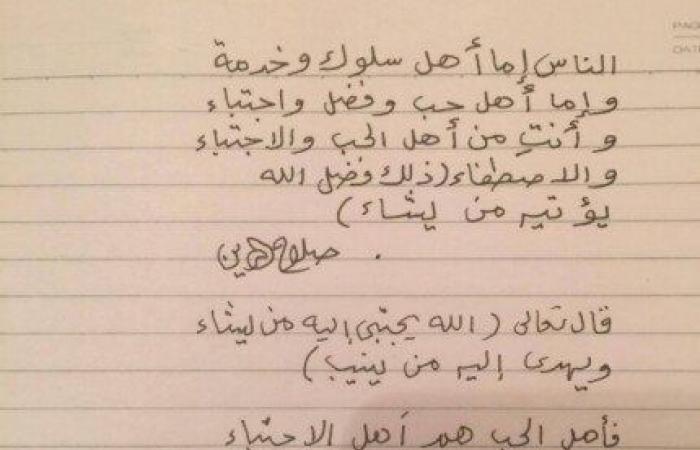 PAG
DATE
الناس إما أهل سلوك وخدمة
وإما أهل حب وفضل واجتباء
وأنتِ من أهل الحب والاجتباء
والاصطفاء (ذلك فضل الله
يؤتيه من يشاء)
. صلاح الدين
قال تعالى (الله يجتبي إليه من يشاء
ويهدى إليه من ينيب)
فأهل الحب هم أهل الاجتباء